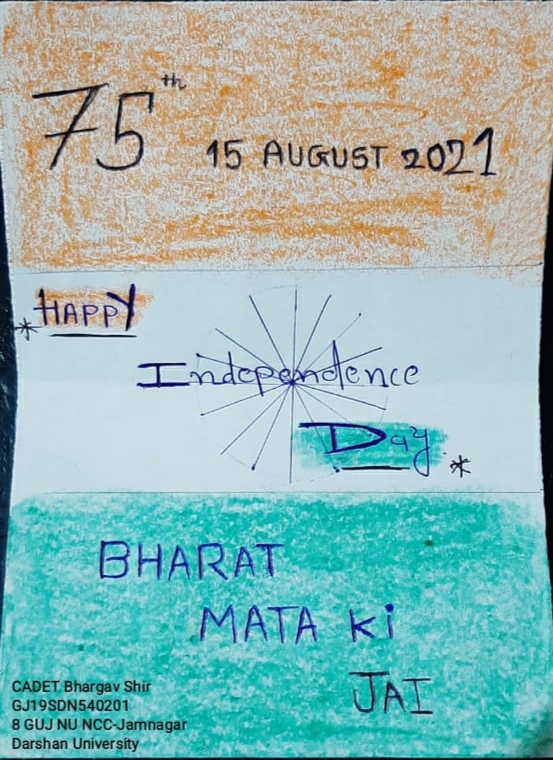 75th
15 AUGUST 2021
*HAPPY
Independence
Day. *
BHARAT
MATA Ki
JAI
CADET Bhargav Shir
GJ19SDN540201
8 GUJ NU NCC-Jamnagar
Darshan University